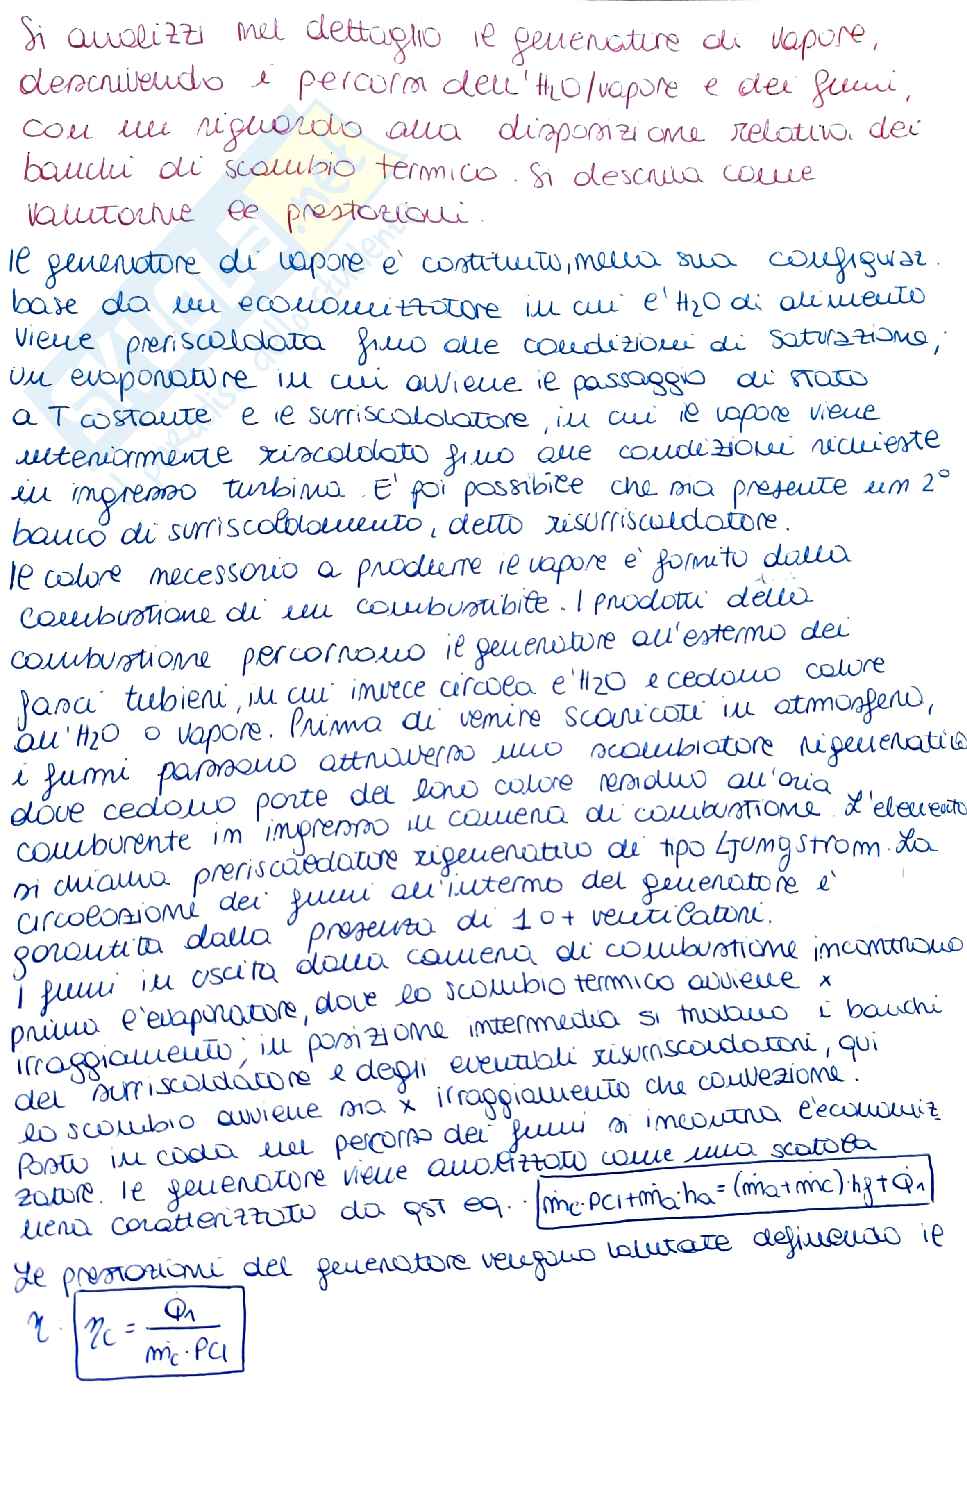 Si analizzi nel dettaglio il generatore di vapore,
descrivendo i percorsi dell'H2O/vapore e dei fumi,
con un riguardo alla disposizione relativa dei
banchi di scambio termico. Si descriva come
valutarne le prestazioni.
Il generatore di vapore è costituito, nella sua configuraz.
base da un economizzatore in cui l'H2O di alimento
viene preriscaldata fino alle condizioni di saturazione;
un evaporatore in cui avviene il passaggio di stato
a T costante e il surriscaldatore, in cui il vapore viene
ulteriormente riscaldato fino alle condizioni richieste
in ingresso turbina. E' poi possibile che sia presente un 2°
banco di surriscaldamento, detto risurriscaldatore.
Il calore necessario a produrre il vapore è fornito dalla
combustione di un combustibile. I prodotti della
combustione percorrono il generatore all'esterno dei
fasci tubieri, in cui invece circola l'H2O e cedono calore
all'H2O o vapore. Prima di venire scaricati in atmosfera,
i fumi passano attraverso uno scambiatore rigenerativo
dove cedono parte del loro calore residuo all'aria
comburente in ingresso in camera di combustione. L'elemento
si chiama preriscaldatore rigenerativo di tipo Ljungstrom. La
circolazione dei fumi all'interno del generatore è
garantita dalla presenza di 1 o + ventilatori.
I fumi in uscita dalla camera di combustione incontrano
prima l'evaporatore, dove lo scambio termico avviene x
irraggiamento; in posizione intermedia si trovano i banchi
del surriscaldatore e degli eventuali risurriscaldatori, qui
lo scambio avviene sia x irraggiamento che convezione.
Posto in coda nel percorso dei fumi si incontra l'economiz
zatore. Il generatore viene analizzato come una scatola
nera caratterizzato da qst eq. ṁc·PCI+ṁa·ha=(ṁa+ṁc)·hf+Q̇1
Le prestazioni del generatore vengono valutate definendo il
η. ηc = Q̇1 / ṁc·PCI